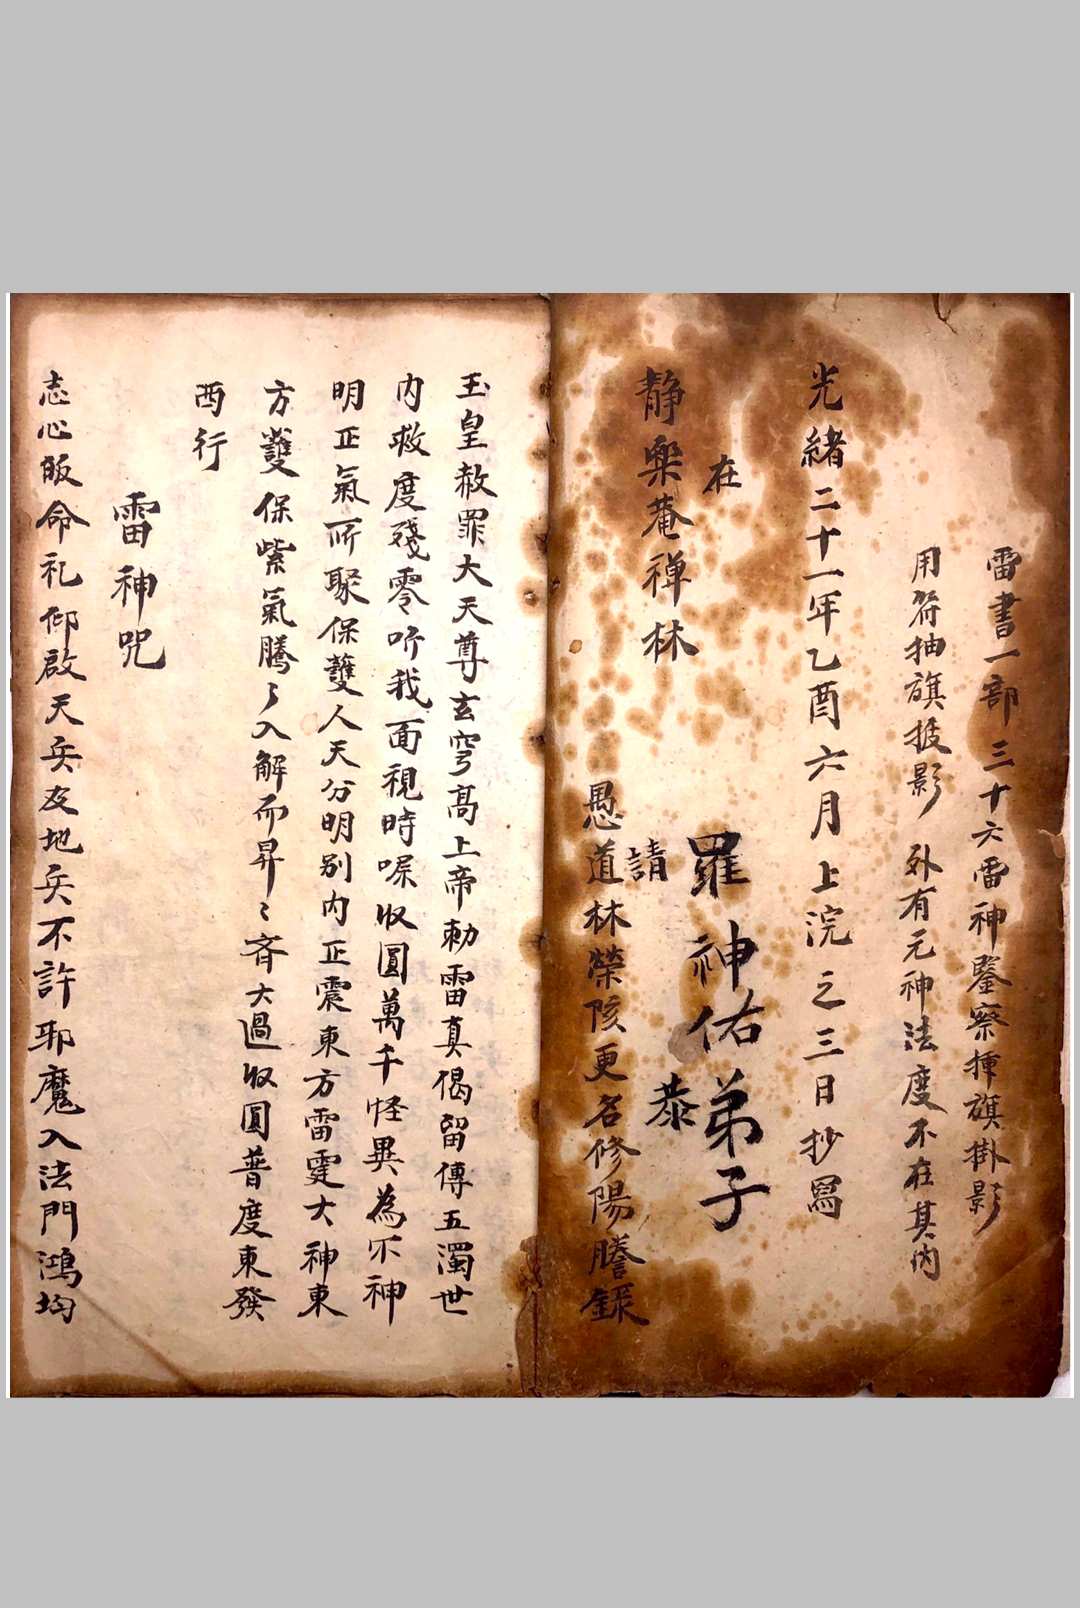 雷書一部三十六雷神鑒察揮旗掛影
用符抽旗披影 外有元神法度不在其內
光緒二十一年乙酉六月上浣之三日抄寫
在
羅神佑弟子
靜樂菴禅林
請 恭
愚道林榮陔更名修陽謄錄
玉皇赦罪大天尊玄穹高上帝勅雷真偈留傳五濁世
内救度殘零听我面視時㗼收圓萬千怪異為不神
明正氣所聚保護人天分明别内正震東方雷霆大神東
方護保紫氣騰々入解而昇々斉大過收圓普度東發
西行
雷神咒
志心皈命礼仰啟天兵及地兵不許耶魔入法門鴻均